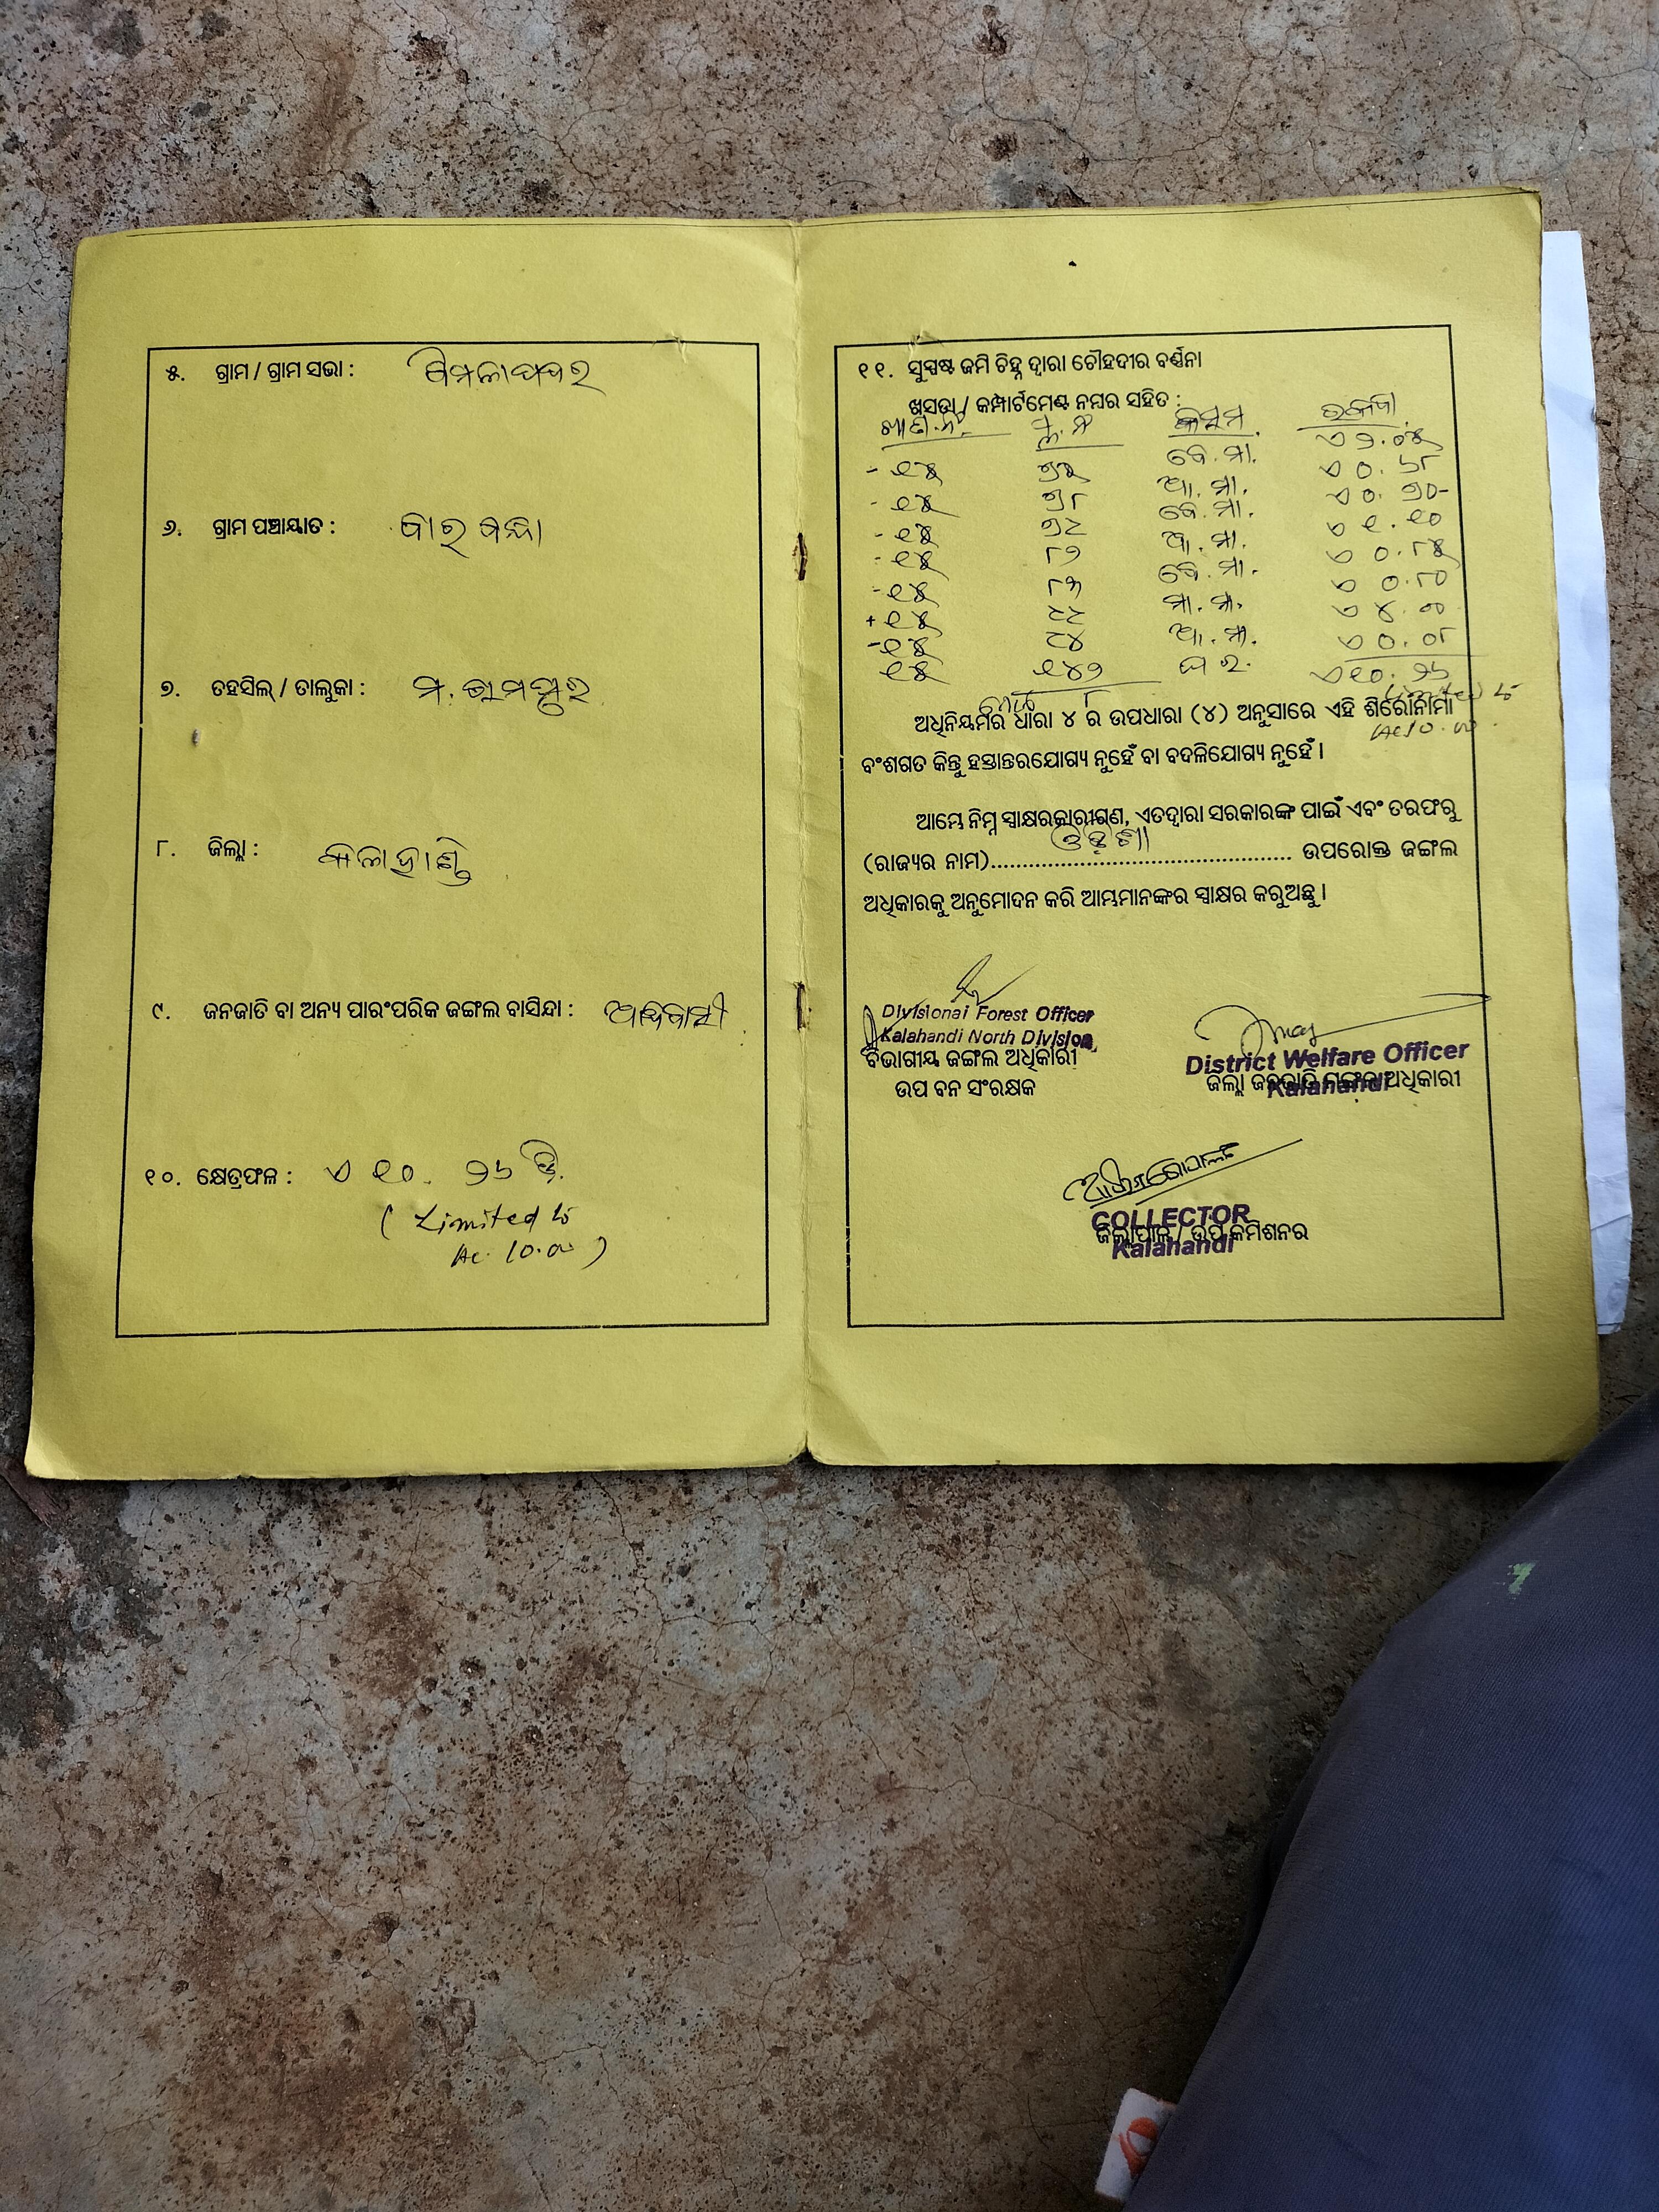 ୫. ଗ୍ରାମ / ଗ୍ରାମ ସଭା : ଶିମଳାପଦର
୬. ଗ୍ରାମ ପଞ୍ଚାୟାତ : ବାରବନ୍ଧା
୭. ତହସିଲ୍ / ତାଲୁକା : ମ. ରାମପୁର
୮. ଜିଲ୍ଲା : କଳାହାଣ୍ଡି
୯. ଜନଜାତି ବା ଅନ୍ୟ ପାରଂପରିକ ଜଙ୍ଗଲ ବାସିନ୍ଦା : ଆଦିବାସୀ
୧୦. କ୍ଷେତ୍ରଫଳ : ଏ ୧୦. ୨୬ ଡି.
( Limited to
Ac. 10.00 )
୧୧. ସୁସ୍ପଷ୍ଟ ଜମି ଚିହ୍ନ ଦ୍ୱାରା ଚୌହଦୀର ବର୍ଣ୍ଣନା
ଖସଡ଼ା / କମ୍ପାର୍ଟମେଣ୍ଟ ନମ୍ବର ସହିତ :
ଖାତା.ନଂ ପ୍ଲ.ନଂ କିସମ ରକବା
- ୧୫ ୭୫ ବେ. ମା. ଏ ୨.୦୫
- ୧୫ ୭୮ ଆ. ମା. ଏ ୦.୬୮
- ୧୫ ୭୯ ବେ. ମା. ଏ ୦.୭୦
- ୧୫ ୮୨ ଆ. ମା. ଏ ୧.୧୦
- ୧୫ ୮୩ ବେ. ମା. ଏ ୦.୮୫
+ ୧୫ ୯୯ ମା. ମା. ଏ ୦.୮୦
- ୧୫ ୯୪ ଆ. ମା. ଏ ୪.୦୦
୧୫ ୧୪୨ ଘ ର. ଏ ୦.୦୮
ମୋଟ ୮ ଏ ୧୦.୨୬
Limited to
Ac 10.00
ଅଧିନିୟମର ଧାରା ୪ ର ଉପଧାରା (୪) ଅନୁସାରେ ଏହି ଶିରୋନାମା
ବଂଶଗତ କିନ୍ତୁ ହସ୍ତାନ୍ତରଯୋଗ୍ୟ ନୁହେଁ ବା ବଦଳିଯୋଗ୍ୟ ନୁହେଁ ।
ଆମ୍ଭେ ନିମ୍ନ ସ୍ୱାକ୍ଷରକାରୀଗଣ, ଏତଦ୍ୱାରା ସରକାରଙ୍କ ପାଇଁ ଏବଂ ତରଫରୁ
(ରାଜ୍ୟର ନାମ) ଓଡ଼ିଶା ଉପରୋକ୍ତ ଜଙ୍ଗଲ
ଅଧିକାରକୁ ଅନୁମୋଦନ କରି ଆମ୍ଭମାନଙ୍କର ସ୍ୱାକ୍ଷର କରୁଅଛୁ ।
Divisional Forest Officer
Kalahandi North Division
ବିଭାଗୀୟ ଜଙ୍ଗଲ ଅଧିକାରୀ
ଉପ ବନ ସଂରକ୍ଷକ
District Welfare Officer
Kalahandi
ଜିଲ୍ଲା ଜନଜାତି ମଙ୍ଗଳ ଅଧିକାରୀ
COLLECTOR
Kalahandi
ଜିଲ୍ଲାପାଳ / ଉପ କମିଶନର